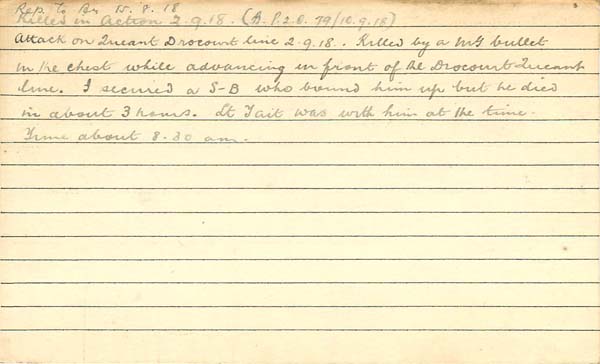 Rep. to Bn 15. 8. 18
Killed in Action 2.9.18. (B.P.2.O. 79/10.9.18)
Attack on Queant Drocourt line 2-9-18. Killed by a MG bullet
in the chest while advancing in front of the Drocourt-Queant
line. I secured a S-B who bound him up but he died
in about 3 hours. Lt Tait was with him at the time.
Time about 8.30 am.